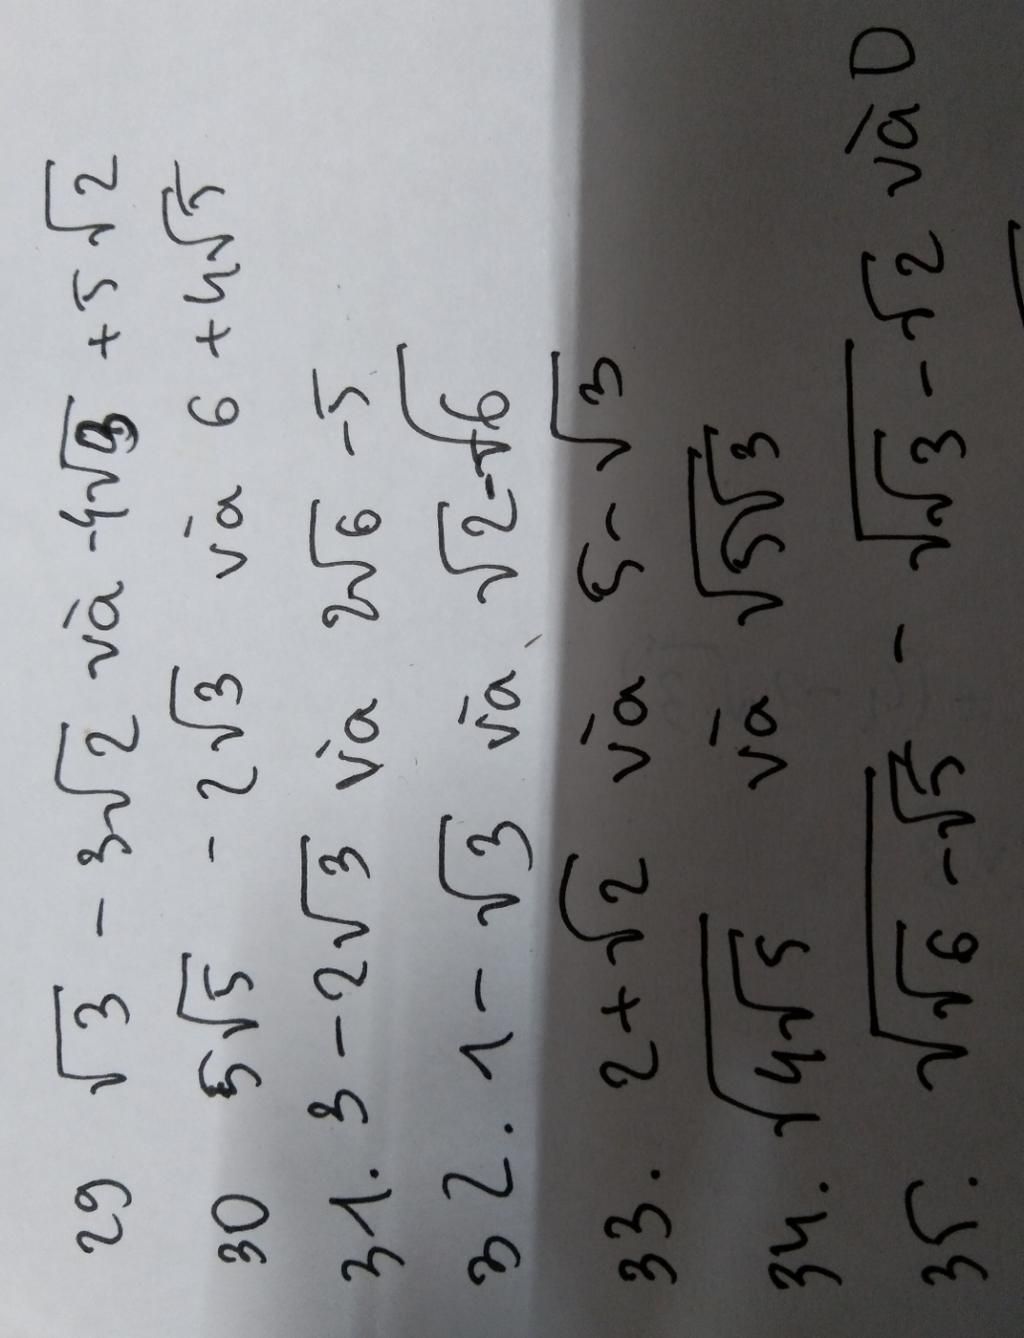 29 √3 - 3√2 và -4√3 + 5√2
30 5√5 - 2√3 và 6 + 4√5
31. 3 - 2√3 và 2√6 - 5
32. 1 - √3 và √(2-√6)
33. 2 + √2 và 5 - √3
34. √(4√5) và √(5√3)
35. √(√6 - √5) - √(√3 - √2) và 0